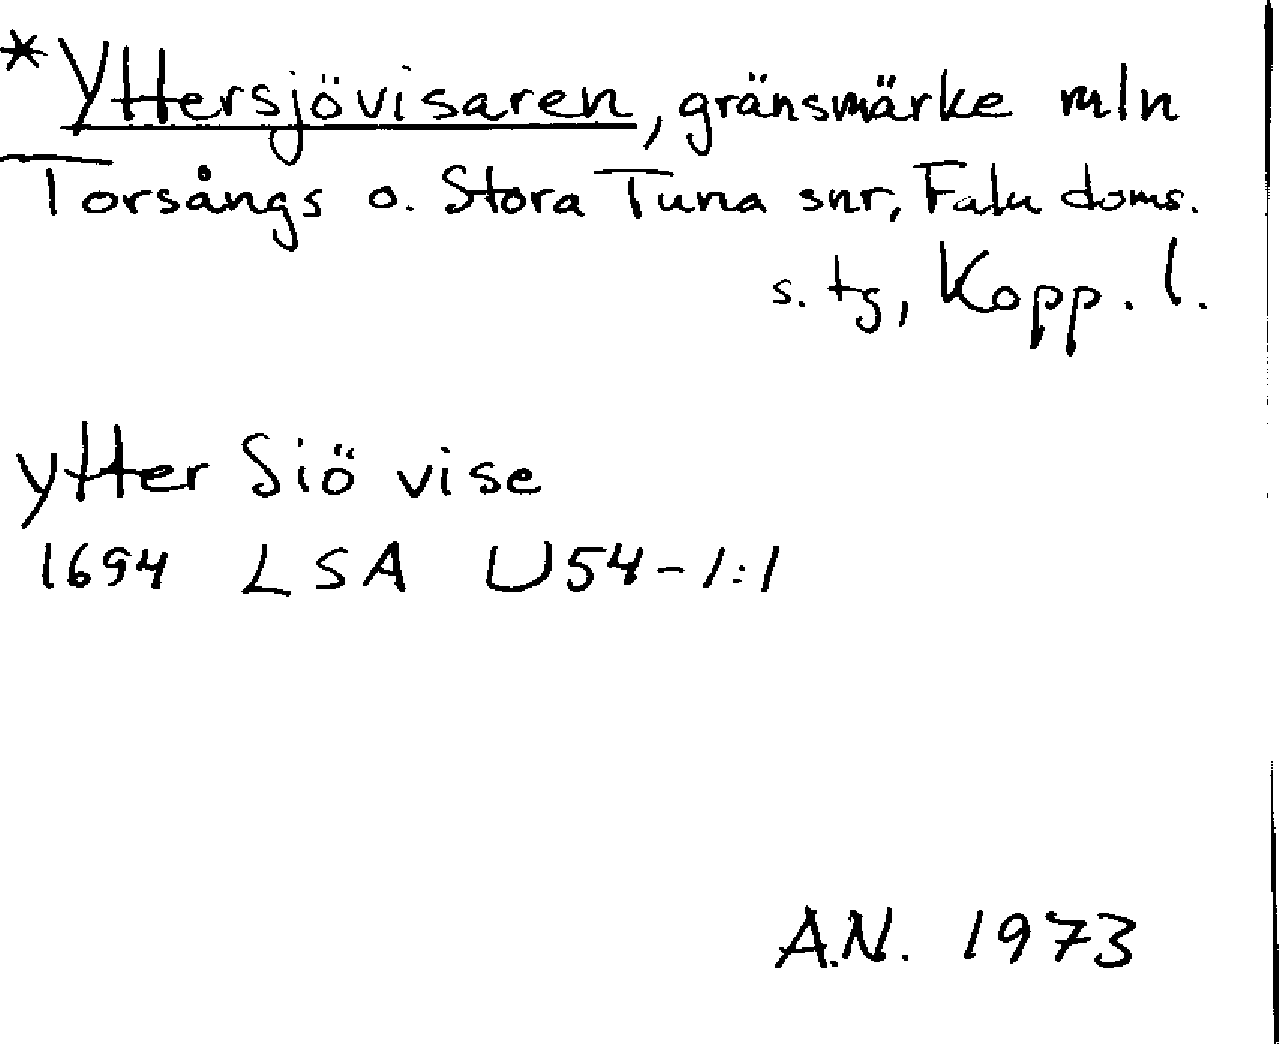 *Yttersjövisaren, gränsmärke mln
Torsångs o. Stora Tuna snr, Falu doms.
s. tg, Kopp. l.
ytter Siö vise
1694 LSA U54-1:1
A.N. 1973